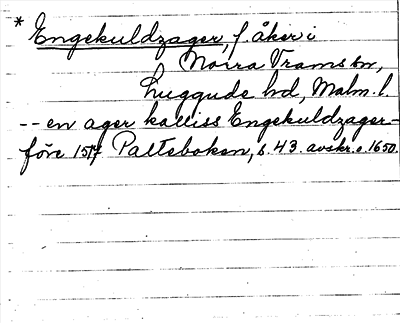 * Engekuldzager, f. åker i
Norra Vrams sn,
Luggude hd, Malm. l.
-- en ager kalliss Engekuldzager -
före 1517 Paltebokon, s. 43. avskr. c. 1650.